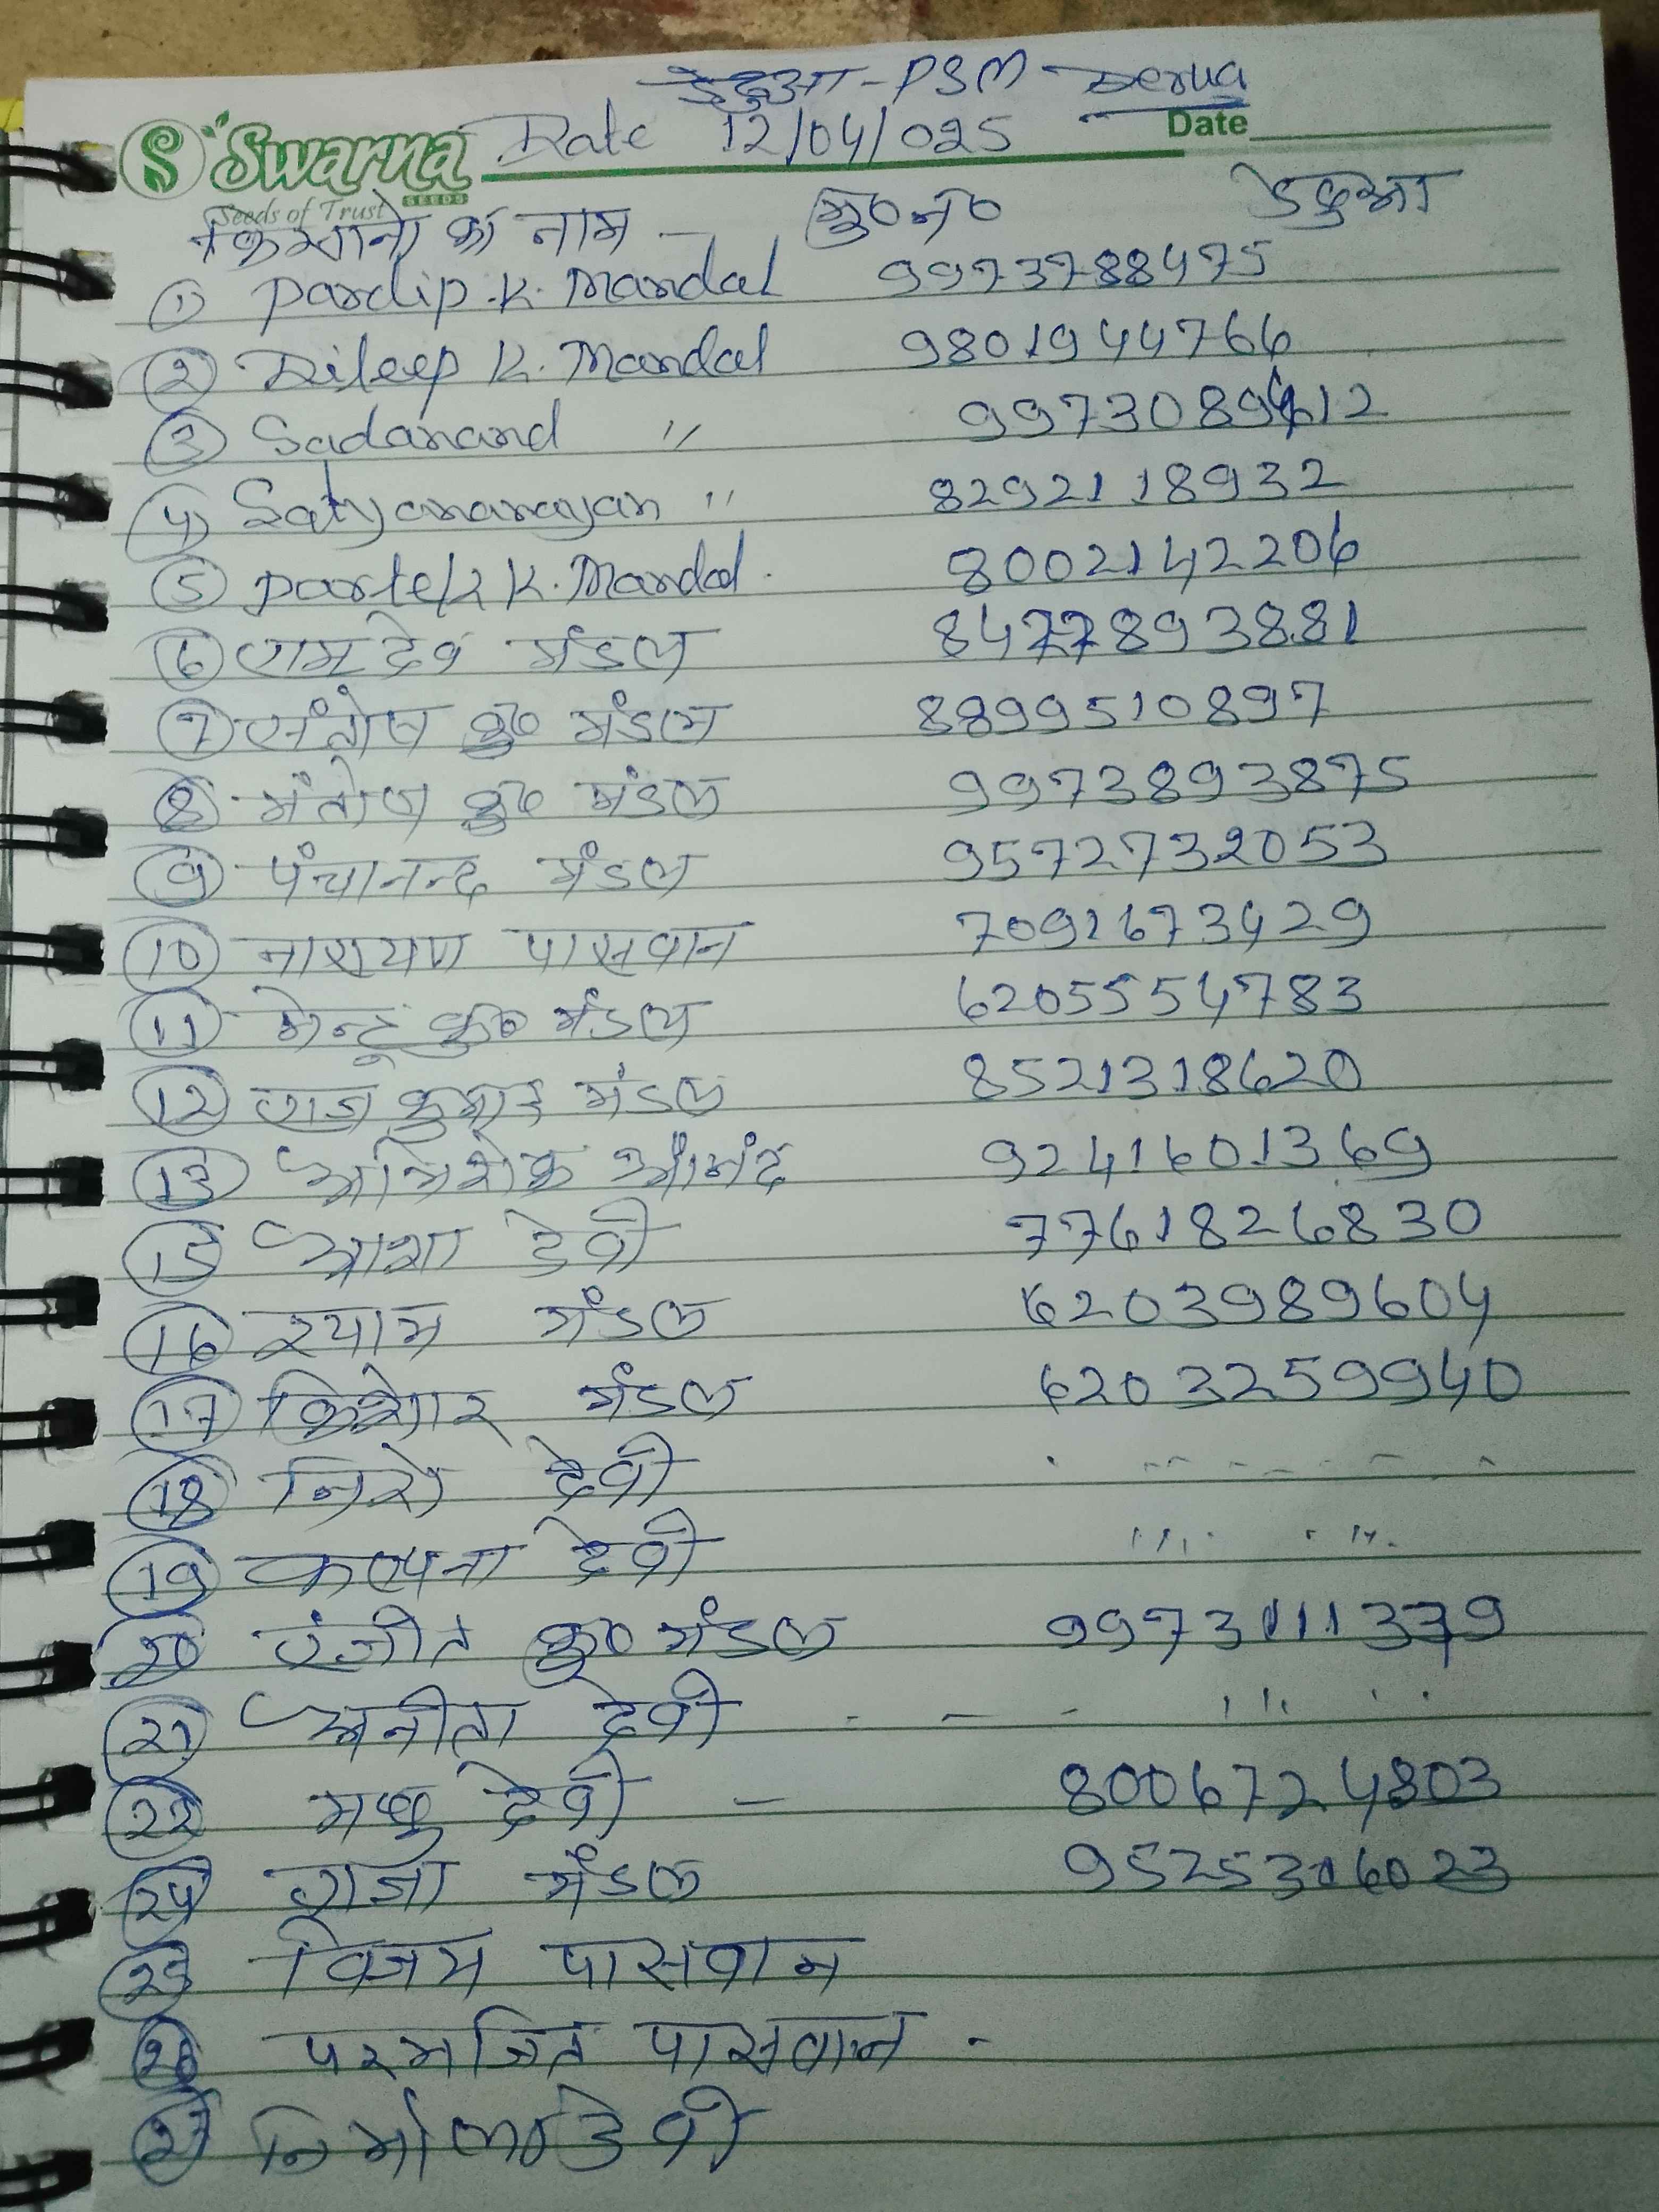 डेढुआ - PSM Derua
Swarna Date 12/04/025 Date
SEEDS
Seeds of Trust
किसानो का नाम - मु० न० डेढुआ
① Pardip .K. Mandal 9973788475
② Dileep K. Mandal 9801944766
③ Sadanand " 9973089612
④ Satyanarayan " 8292118932
⑤ K. Mandal. 8002142206
⑥ रामदेव मंडल 8477893881
⑦ संतोष कु० मंडल 8899510897
⑧ मंतोष कु० मंडल 9973893875
⑨ पंचानन्द मंडल 9572732053
⑩ नारायण पासवान 7091673429
⑪ मेन्टू कु० मंडल 6205554783
⑫ राज कुमार मंडल 8521318620
⑬ अभिशेक आंनंद 9241601369
⑮ आशा देवी 7761826830
⑯ श्याम मंडल 6203989604
⑰ किशोर मंडल 6203259940
⑱ निरो देवी
⑲ कल्पना देवी
⑳ रंजीत कु० मंडल 9973111379
㉑ अनीता देवी - - -
㉒ देवी - 8006724803
राजा मंडल 9525306023
विजय पासवान
परमजित पासवान -
㉗ देवी